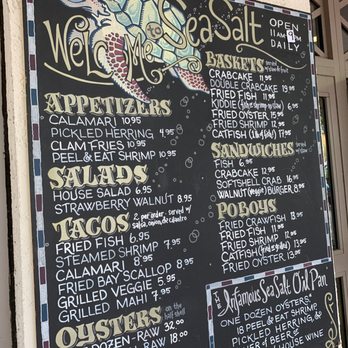 Welcome to Sea Salt
OPEN
11 AM 9 PM
DAILY
APPETIZERS
CALAMARI 10.95
PICKLED HERRING 4.95
CLAM FRIES 10.95
PEEL & EAT SHRIMP 10.95
SALADS
HOUSE SALAD 6.95
STRAWBERRY WALNUT 8.95
TACOS 2 per order - served w/
salsa, onion, & cilantro
FRIED FISH 6.95
STEAMED SHRIMP 7.95
CALAMARI 8.95
FRIED BAY SCALLOP 8.95
GRILLED VEGGIE 5.95
GRILLED MAHI 7.95
OYSTERS on the
half shell
DOZEN - RAW 32.00
RAW 18.00
BASKETS served
w/ slaw & fries
CRABCAKE 11.95
DOUBLE CRABCAKE 19.95
FRIED FISH 11.95
KIDDIE 6.95
FRIED OYSTER 15.95
FRIED SHRIMP 12.95
CATFISH 12.95
SANDWICHES
FISH 6.95
CRABCAKE 12.95
SOFTSHELL CRAB 16.95
WALNUT (veggie) BURGER 8.95
POBOYS
FRIED CRAWFISH
FRIED FISH
FRIED SHRIMP
CATFISH
FRIED OYSTER 13.95
THE Infamous Sea Salt Oil Pan
ONE DOZEN OYSTERS
18 PEEL & EAT SHRIMP
PICKLED HERRING &
PITCHER of BEER or
HOUSE WINE